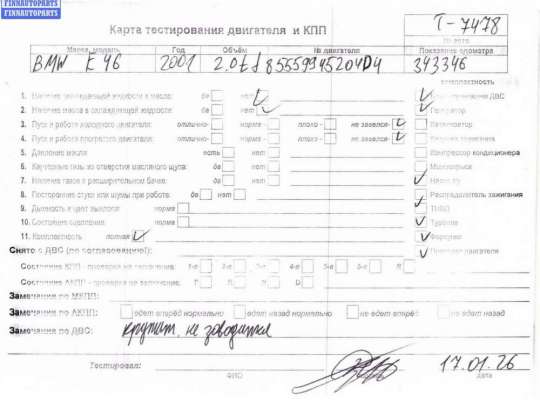 FINNAUTOPARTS
FINNAUTOPARTS
Карта тестирования двигателя и КПП
Т-7478
№ авто
Марка, модель Год Объём № двигателя Показание одометра
BMW E46 2001 2.0td 85559945204D4 343346
комплектность
1. Наличие охлаждающей жидкости в масле: да нет ДВС
2. Наличие масла в охлаждающей жидкости: да нет Генератор
3. Пуск и работа холодного двигателя: отлично- норма - плохо - не завелся-
4. Пуск и работа прогретого двигателя: отлично- норма - плохо - не завелся-
5. Давление масла есть нет Компрессор кондиционера
6. Картерные газы из отверстия масляного щупа: да нет
7. Наличие газов в расширительном бачке: да нет
8. Посторонние стуки или шумы при работе: да нет Распределитель зажигания
9. Дымность и цвет выхлопа: норма ТНВД
10. Состояние сцепления: норма Турбина
11. Комплектность полная Форсунки
Снято с ДВС (по согласованию): двигателя
Состояние КПП - проверка на включение: 1-я 2-я 3-я 4-я 5-я R
Состояние АКПП - проверка на включение: P R N D
Замечания по МКПП:
Замечания по АКПП: едет вперёд нормально едет назад нормально не едет вперёд не едет назад
Замечания по ДВС: крутит, не заводится
Тестировал: 17.01.26
ФИО дата